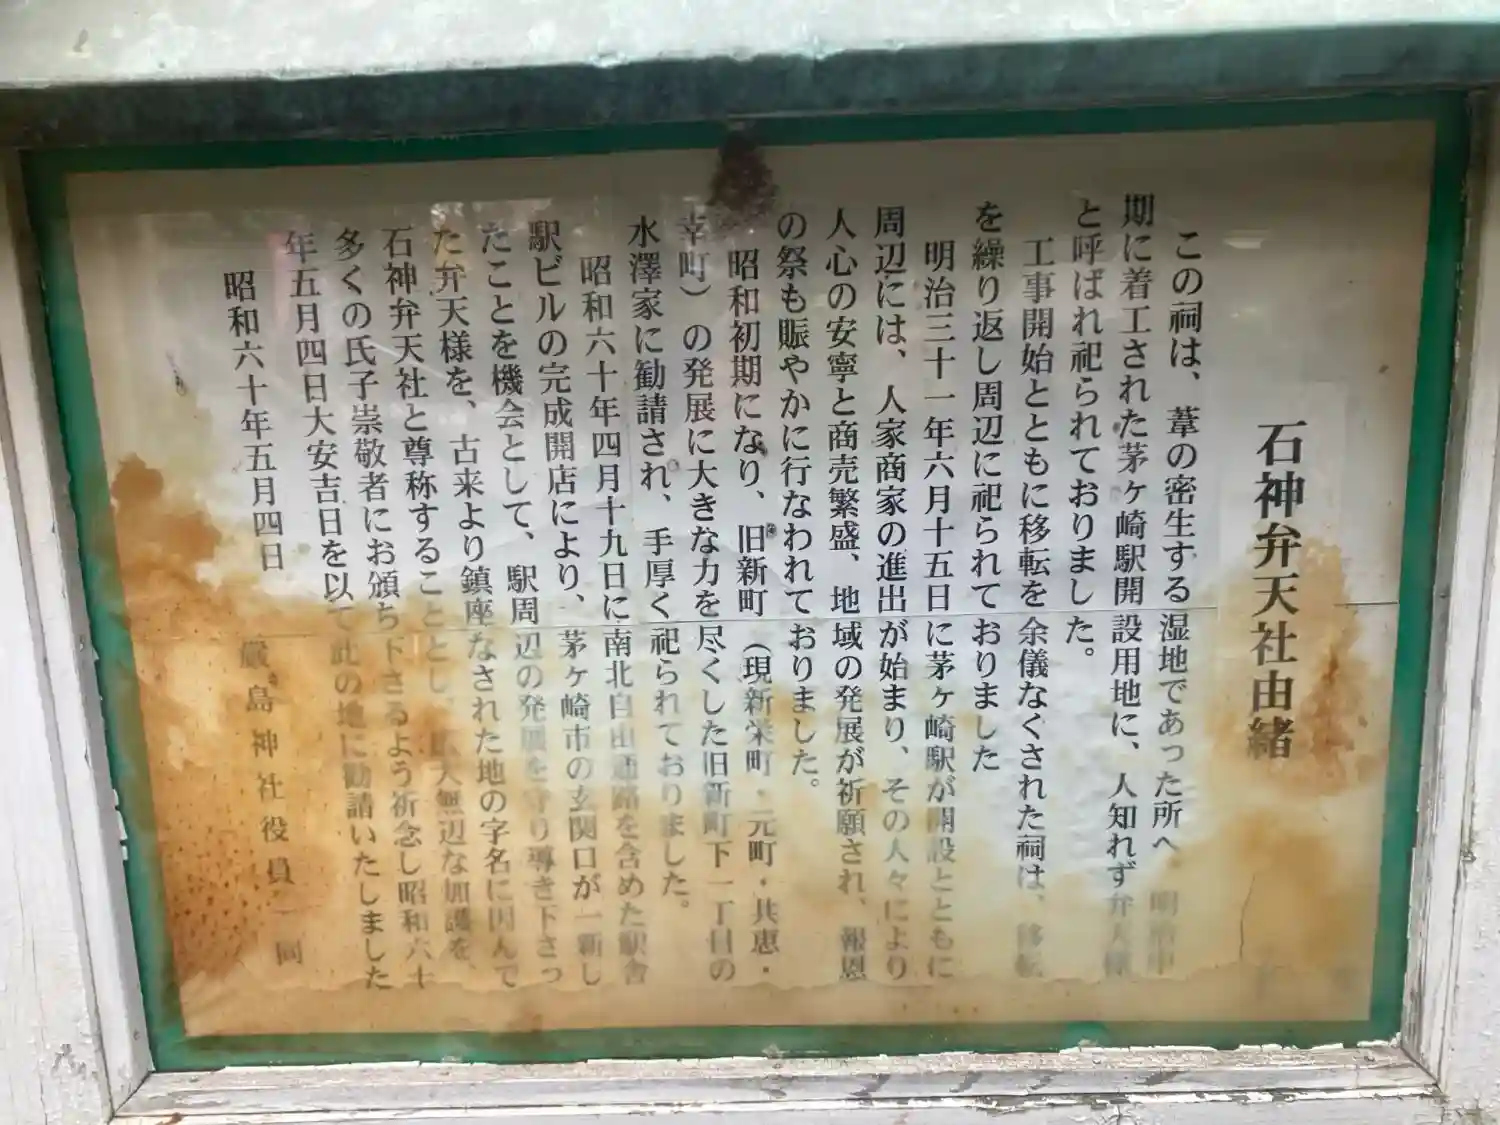 石神弁天社由緒
この祠は、葦の密生する湿地であった所へ、明治中
期に着工された茅ヶ崎駅開設用地に、人知れず弁天様
と呼ばれ祀られておりました。
工事開始とともに移転を余儀なくされた祠は、移転
を繰り返し周辺に祀られておりました
明治三十一年六月十五日に茅ヶ崎駅が開設とともに
周辺には、人家商家の進出が始まり、その人々により
人心の安寧と商売繁盛、地域の発展が祈願され、報恩
の祭も賑やかに行なわれておりました。
昭和初期になり、旧新町（現新栄町・元町・共恵・
幸町）の発展に大きな力を尽くした旧新町下一丁目の
水澤家に勧請され、手厚く祀られておりました。
昭和六十年四月十九日に南北自由通路を含めた駅舎
駅ビルの完成開店により、茅ヶ崎市の玄関口が一新し
たことを機会として、駅周辺の発展を守り導き下さっ
た弁天様を、古来より鎮座なされた地の字名に因んで
石神弁天社と尊称することとし、大無辺な加護を、
多くの氏子崇敬者にお頒ち下さるよう祈念し昭和六十
年五月四日大安吉日を以て此の地に勧請いたしました
昭和六十年五月四日
厳島神社役員一同